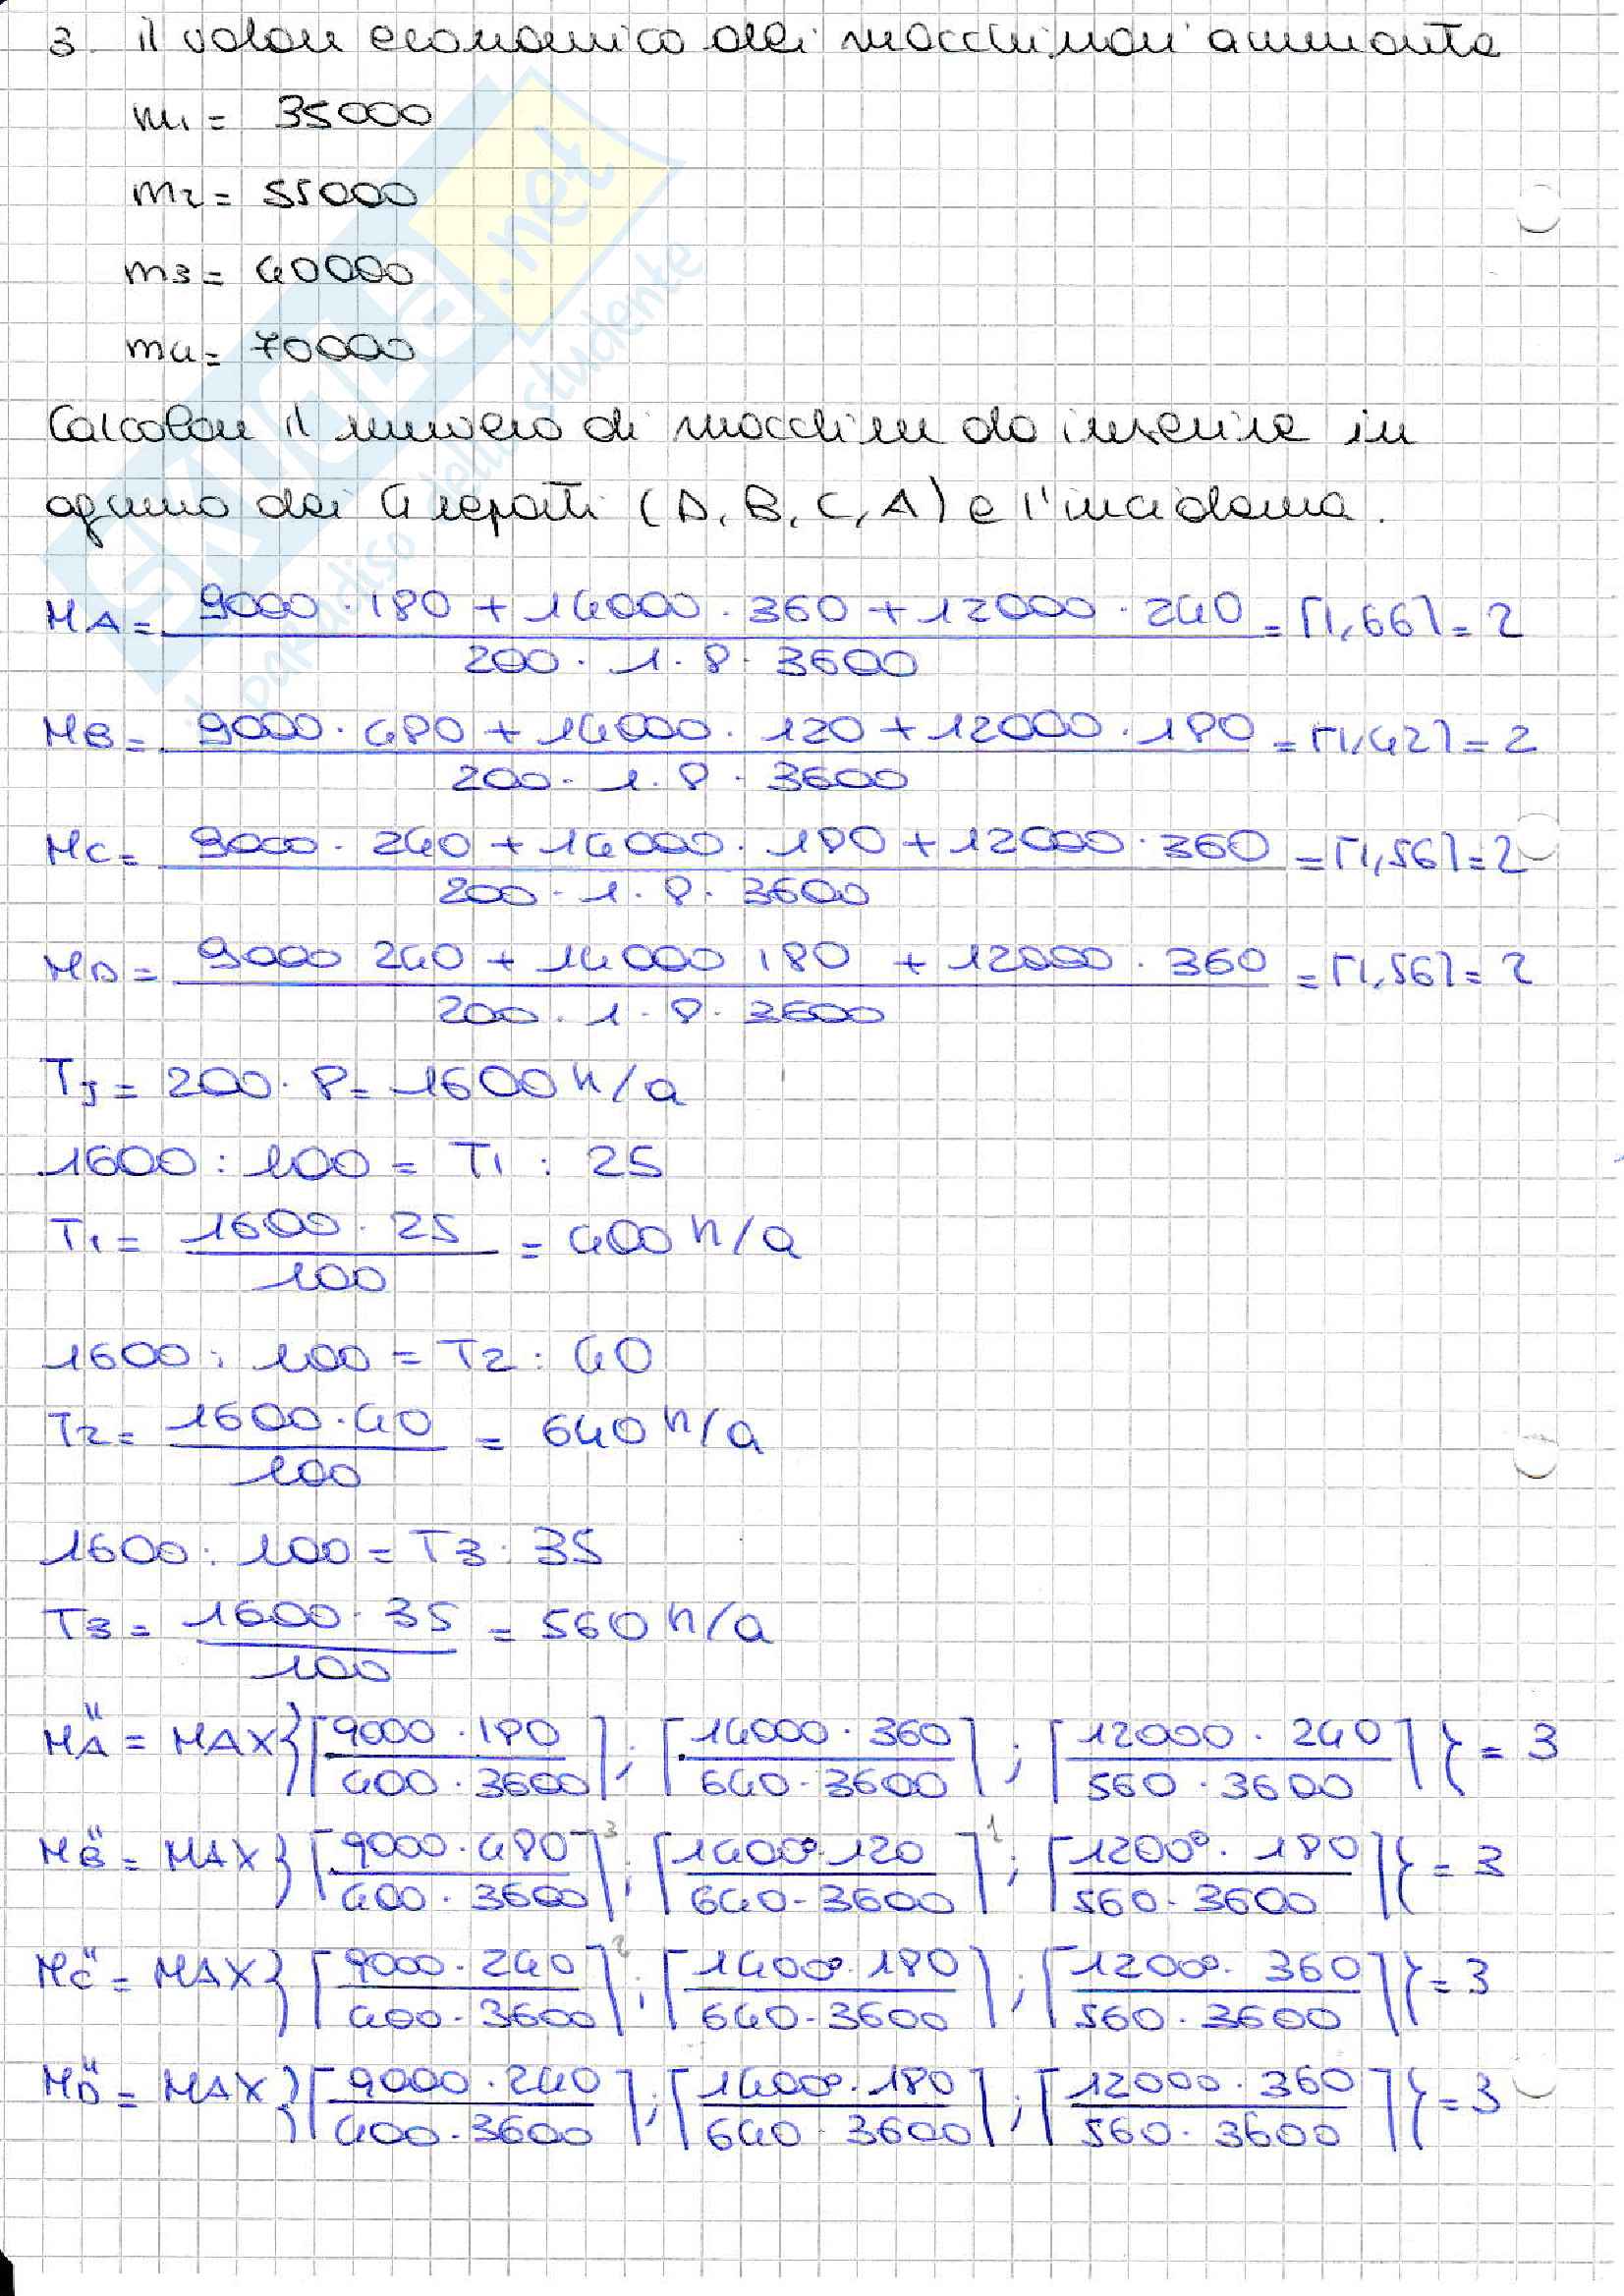 3. il valore economico dei macchinari ammonta
m1 = 35000
m2 = 55000
m3 = 40000
m4 = 70000
Calcolare il numero di macchine da inserire in
ognuno dei 4 reparti (D, B, C, A) e l'incidenza.
MA = 9000 · 180 + 14000 · 360 + 12000 · 240 / 200 · 1 · 8 · 3600 = ⌈1,66⌉ = 2
MB = 9000 · 480 + 14000 · 120 + 12000 · 180 / 200 · 1 · 8 · 3600 = ⌈1,42⌉ = 2
MC = 9000 · 240 + 14000 · 180 + 12000 · 360 / 200 · 1 · 8 · 3600 = ⌈1,56⌉ = 2
MD = 9000 240 + 14000 180 + 12000 · 360 / 200 · 1 · 8 · 3600 = ⌈1,56⌉ = 2
TJ = 200 · 8 = 1600 h/a
1600 : 100 = T1 : 25
T1 = 1600 · 25 / 100 = 400 h/a
1600 : 100 = T2 : 40
T2 = 1600 · 40 / 100 = 640 h/a
1600 : 100 = T3 : 35
T3 = 1600 · 35 / 100 = 560 h/a
MA" = MAX {⌈9000 · 180 / 400 · 3600⌉ ; ⌈14000 · 360 / 640 · 3600⌉ ; ⌈12000 · 240 / 560 · 3600⌉} = 3
MB" = MAX {⌈9000 · 480 / 400 · 3600⌉ 3 ; ⌈14000 · 120 / 640 · 3600⌉ 1 ; ⌈12000 · 180 / 560 · 3600⌉} = 3
MC" = MAX {⌈9000 · 240 / 400 · 3600⌉ 2 ; ⌈14000 · 180 / 640 · 3600⌉ ; ⌈12000 · 360 / 560 · 3600⌉} = 3
MD" = MAX {⌈9000 · 240 / 400 · 3600⌉ ; ⌈14000 · 180 / 640 · 3600⌉ ; ⌈12000 · 360 / 560 · 3600⌉} = 3
SKUOLA.net
il paradiso dello studente